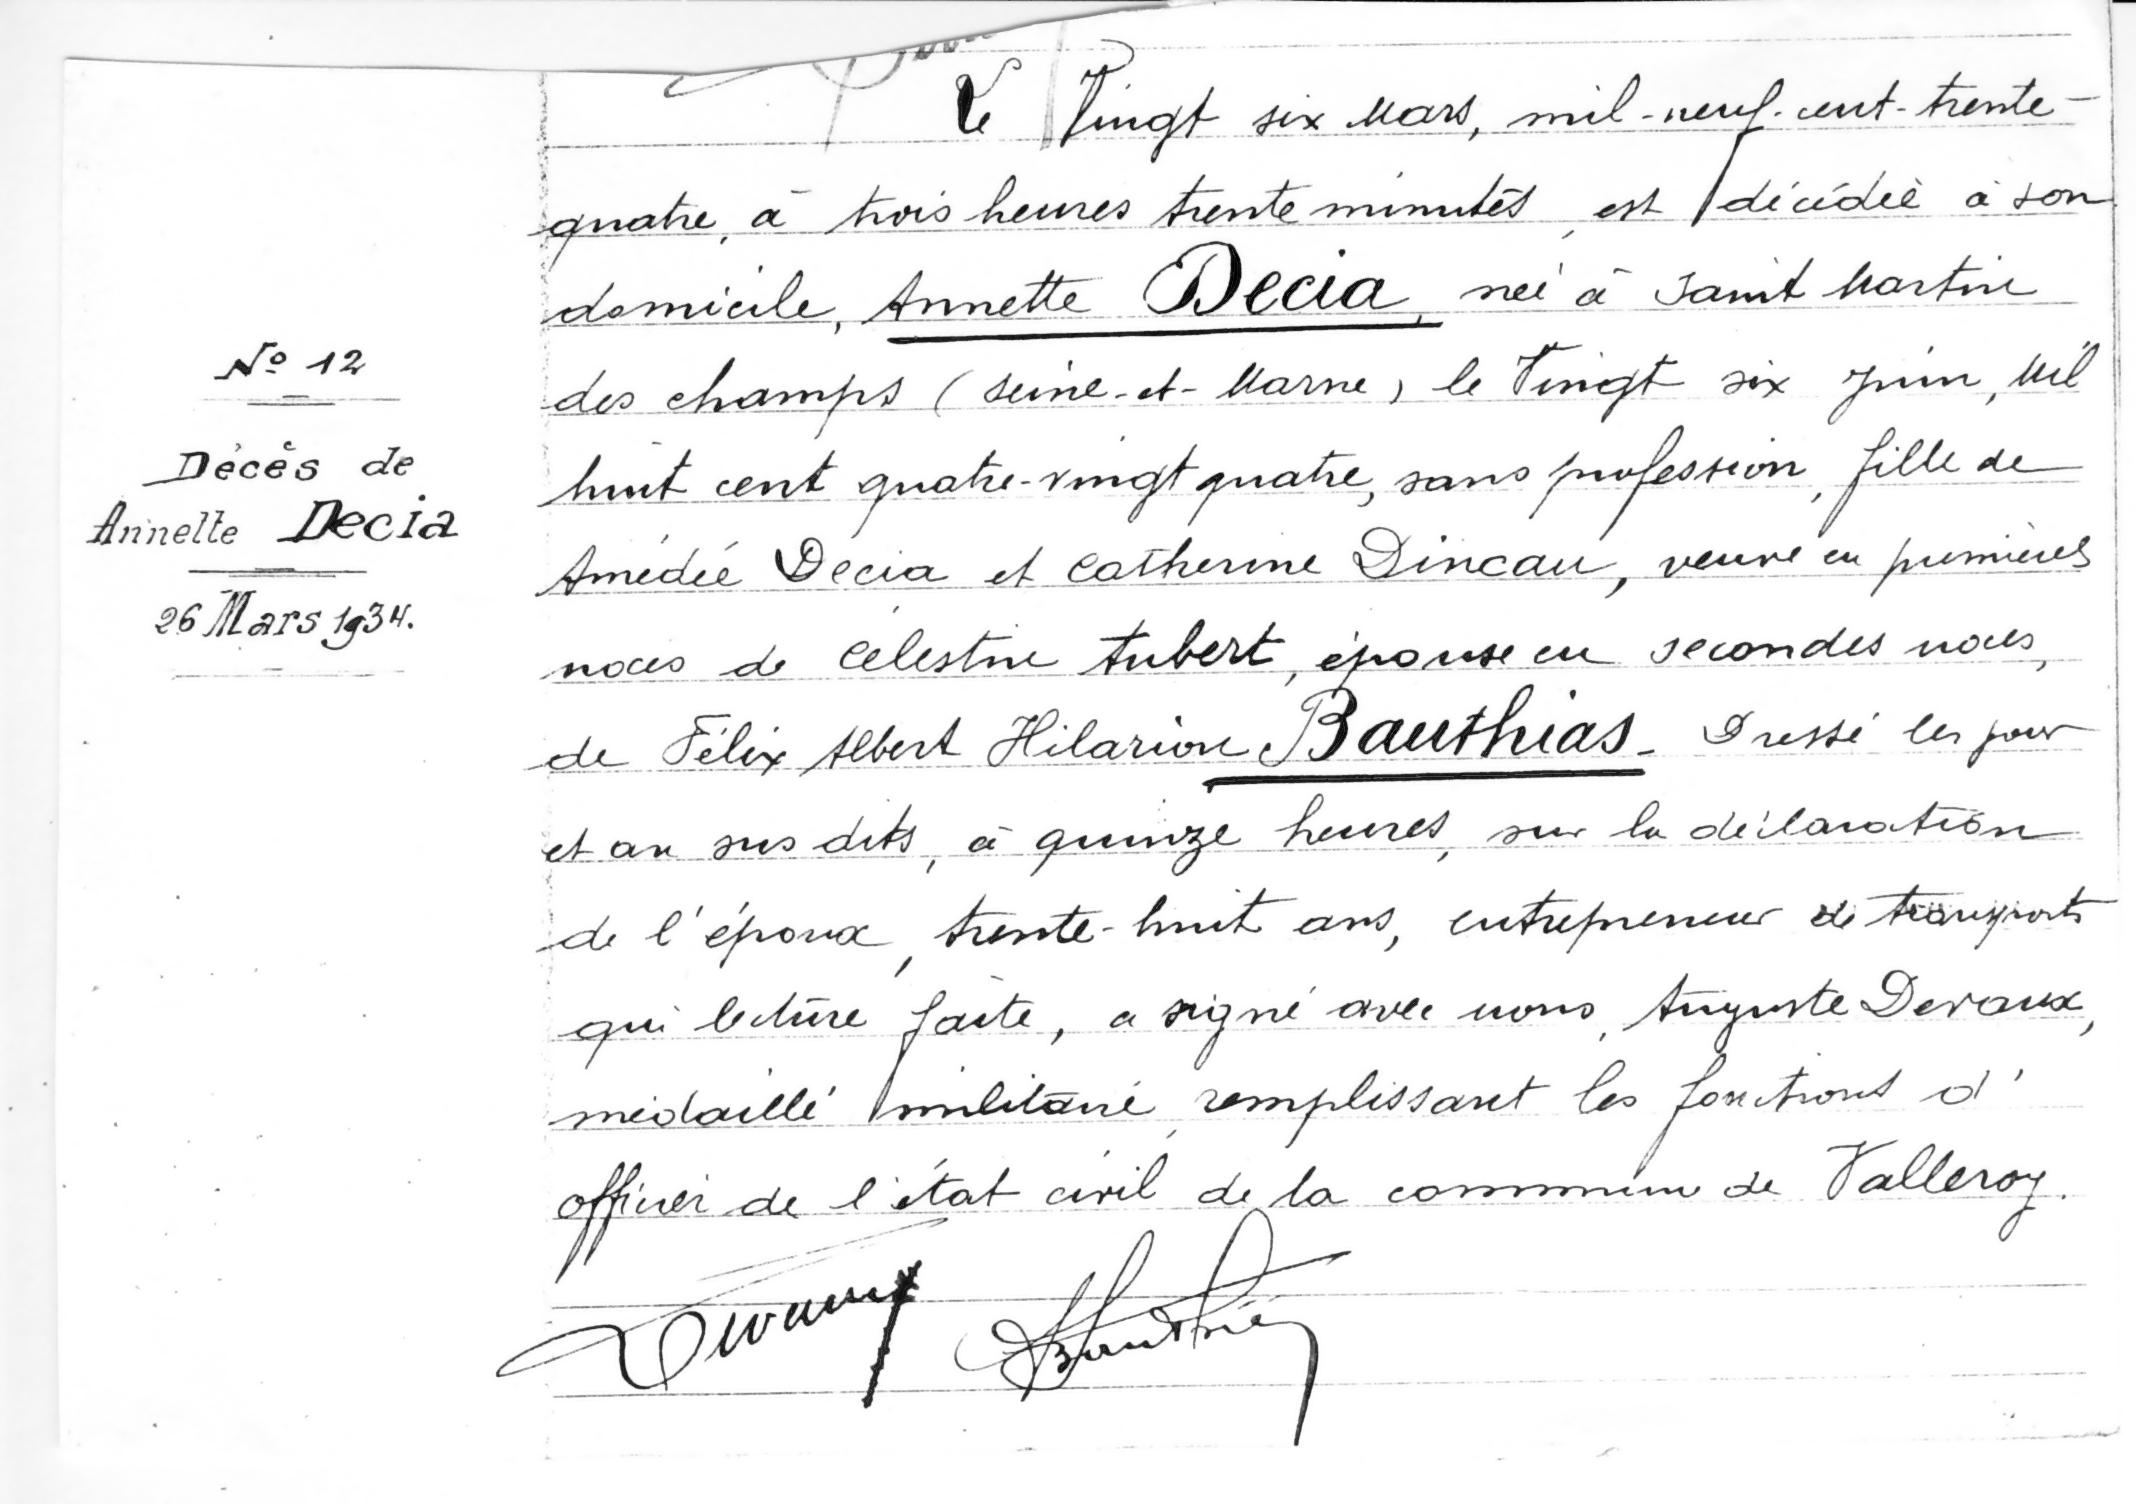 Le Vingt six Mars, mil-neuf-cent-trente-
quatre, à trois heures trente minutes, est décédée à son
domicile, Annette Decia, née à Saint Martin
des champs (Seine-et-Marne) le Vingt six Juin, Mil
huit cent quatre-vingt quatre, sans profession, fille de
Amédée Decia et Catherine Dincau, veuve en premières
noces de Célestin Aubert, épouse en secondes noces,
de Félix Albert Hilarion Bauthias. Dressé les jour
et an sus dits, à quinze heures, sur la déclaration
de l'époux, trente-huit ans, entrepreneur de transports
qui lecture faite, a signé avec nous, Auguste Devaux,
médaillé militaire, remplissant les fonctions d'
officier de l'état civil de la commune de Valleroy.
No 12
Décès de
Annette Decia
26 Mars 1934.
Devaux